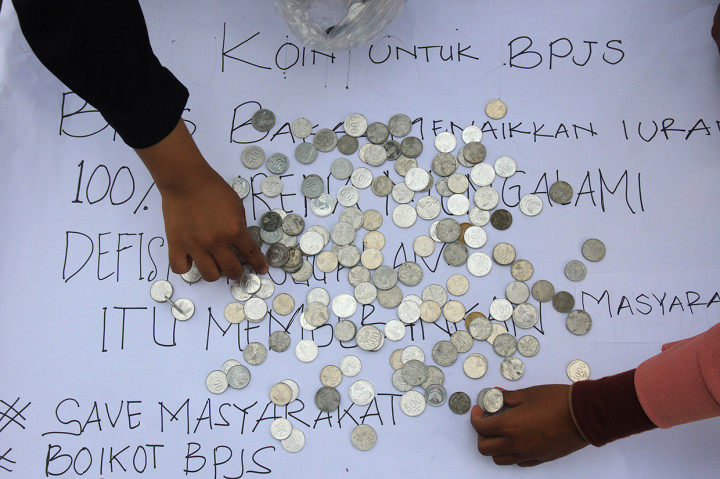 KOIN UNTUK BPJS
MENAIKKAN IURA
100% MENGALAMI
DEFISI
ITU MASYARA
SAVE MASYARAKAT
BOIKOT BPJS